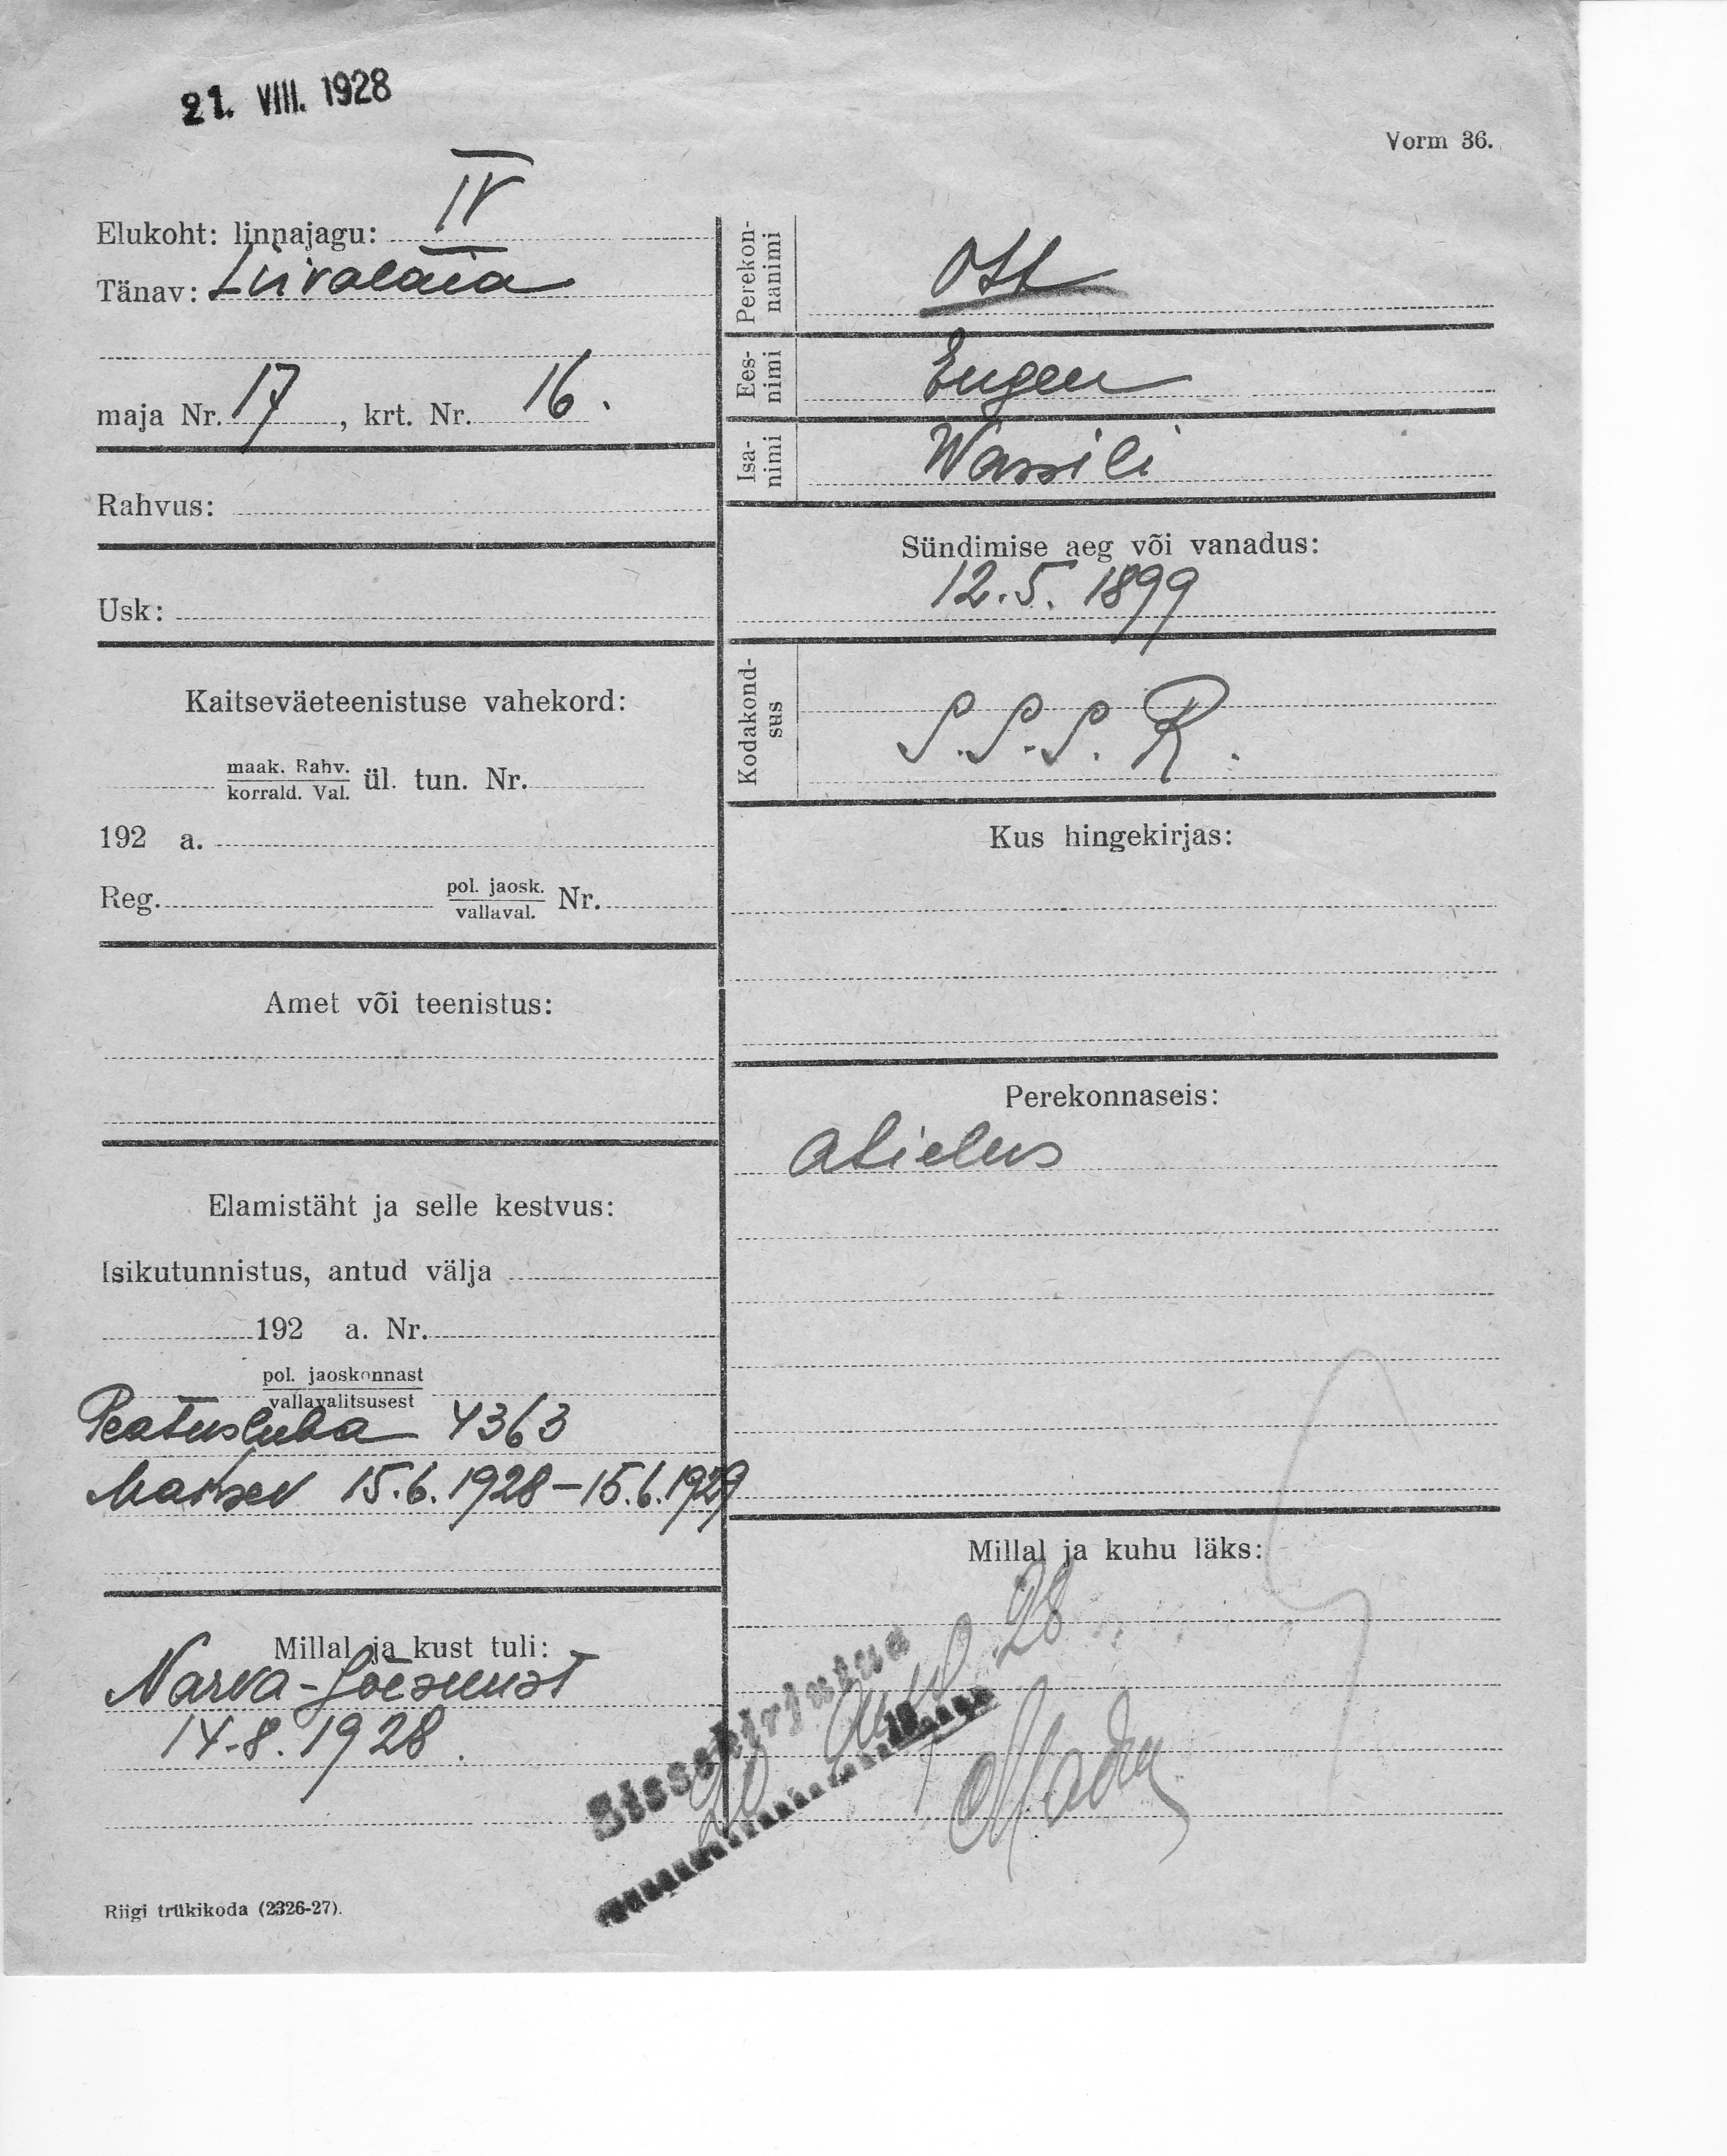 21. VIII. 1928
Vorm 36.
Elukoht: linnajagu: IV
Tänav: Liivalaia
maja Nr. 17, krt. Nr. 16.
Rahvus:
Usk:
Kaitseväeteenistuse vahekord:
maak. Rahv.
korrald. Val. ül. tun. Nr.
192 a.
Reg. pol. jaosk.
vallaval. Nr.
Amet või teenistus:
Elamistäht ja selle kestvus:
Isikutunnistus, antud välja
192 a. Nr.
pol. jaoskonnast
vallavalitsusest
Peatusluba 4363
maksev 15.6.1928-15.6.1929
Millal ja kust tuli:
Narva-Jõesuust
14.8.1928.
Riigi trükikoda (2326-27).
Perekon-
nanimi
Ott
Ees-
nimi
Eugen
Isa-
nimi
Wassili
Sündimise aeg või vanadus:
12.5.1899
Kodakond-
sus
S.S.S.R.
Kus hingekirjas:
Perekonnaseis:
abielus
Millal ja kuhu läks:
Sissekirjutus
28